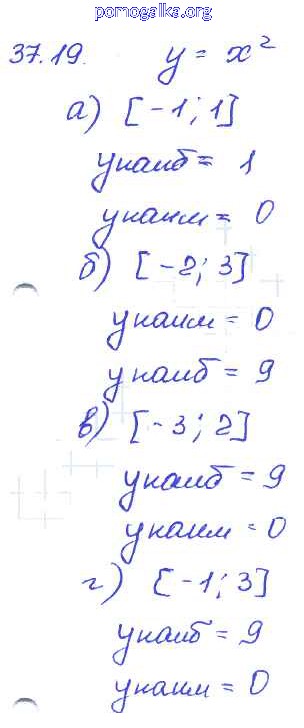 pomogalka.org
37.19. y = x²
а) [-1; 1]
yнаиб = 1
yнаим = 0
б) [-2; 3]
yнаим = 0
yнаиб = 9
в) [-3; 2]
yнаиб = 9
yнаим = 0
г) [-1; 3]
yнаиб = 9
yнаим = 0